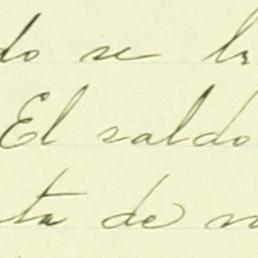 do se
El saldo
ta de